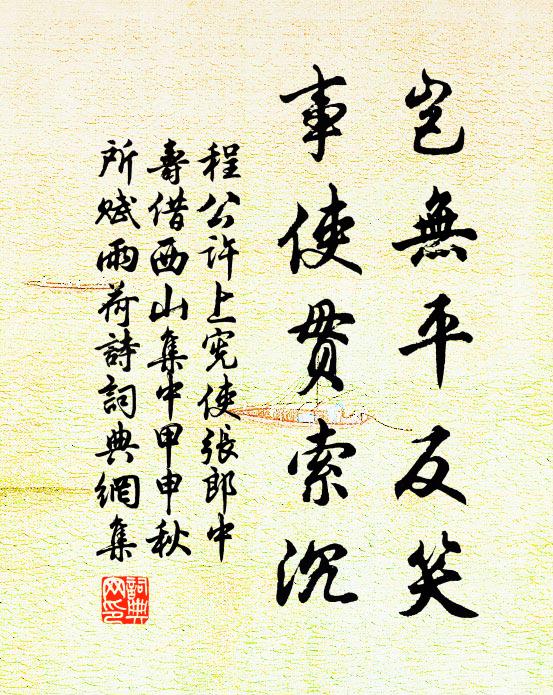 岂無平反笑
事使贯索沉
程公许上宪使張郎中
壽借西山集中甲申秋
所赋雨荷詩詞典網集
詞典网印